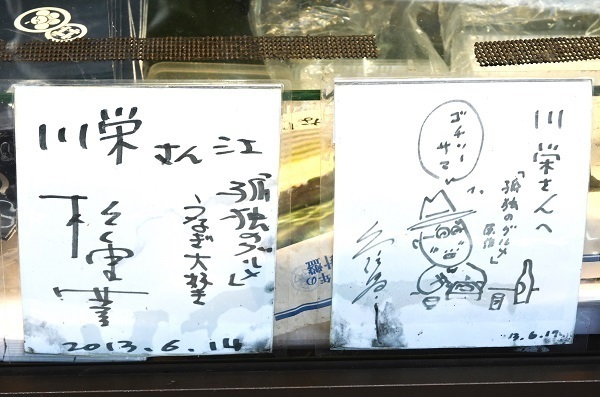 川栄さん江
「孤独のグルメ」
うなぎ大好き
松重豊
2013.6.14
川栄さんへ
「孤独のグルメ」
原作
ゴチソーサマ
'13.6.19